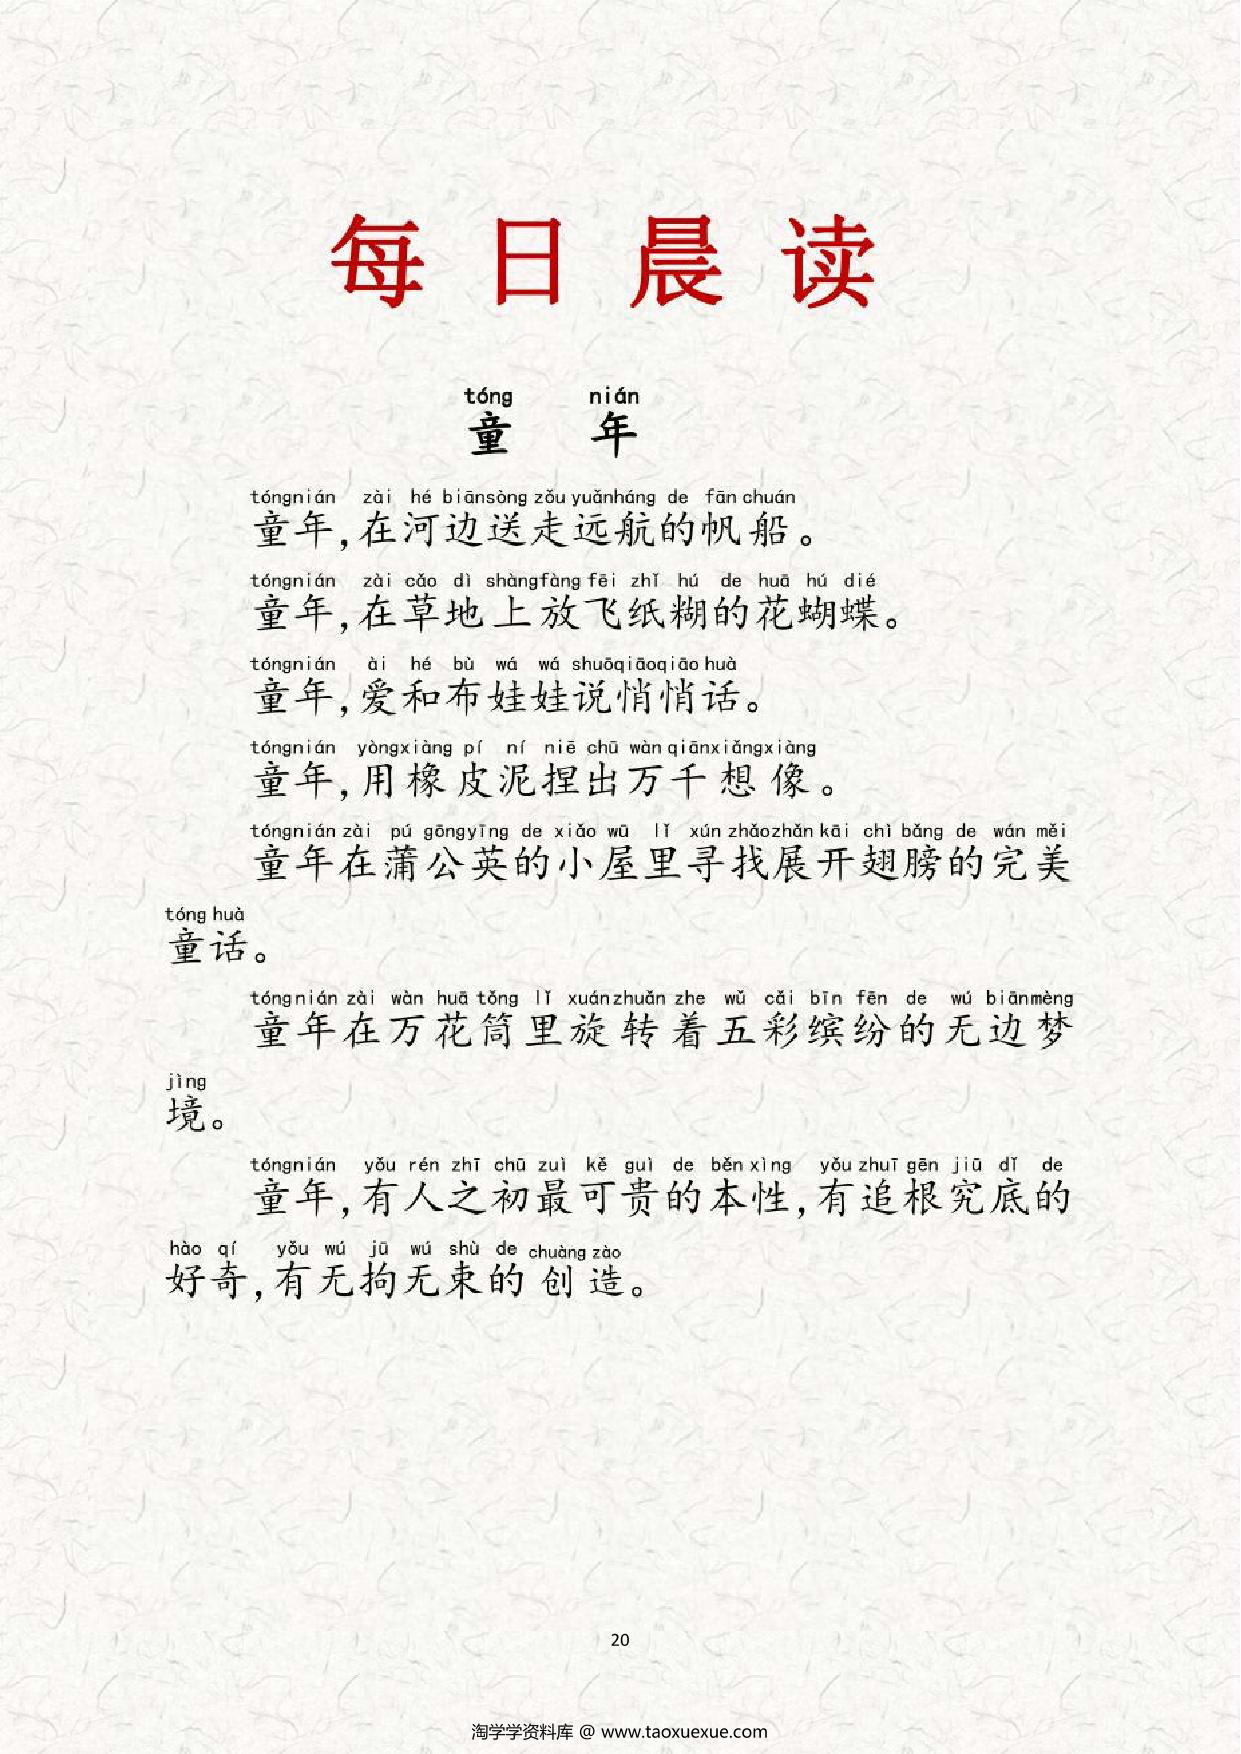 每日晨读
tóng nián
童 年
tóngnián zài hé biānsòng zǒu yuǎnháng de fān chuán
童年,在河边送走远航的帆船。
tóngnián zài cǎo dì shàngfàng fēi zhǐ hú de huā hú dié
童年,在草地上放飞纸糊的花蝴蝶。
tóngnián ài hé bù wá wá shuōqiāoqiāo huà
童年,爱和布娃娃说悄悄话。
tóngnián yòngxiàng pí ní niē chū wàn qiānxiǎngxiàng
童年,用橡皮泥捏出万千想像。
tóngnián zài pú gōngyīng de xiǎo wū lǐ xún zhǎozhǎn kāi chì bǎng de wán měi
童年在蒲公英的小屋里寻找展开翅膀的完美
tóng huà
童话。
tóngnián zài wàn huā tǒng lǐ xuánzhuǎn zhe wǔ cǎi bīn fēn de wú biānmèng
童年在万花筒里旋转着五彩缤纷的无边梦
jìng
境。
tóngnián yǒu rén zhī chū zuì kě guì de běn xìng yǒu zhuī gēn jiū dǐ de
童年,有人之初最可贵的本性,有追根究底的
hào qí yǒu wú jū wú shù de chuàng zào
好奇,有无拘无束的创造。
20
淘学学资料库 @ www.taoxuexue.com